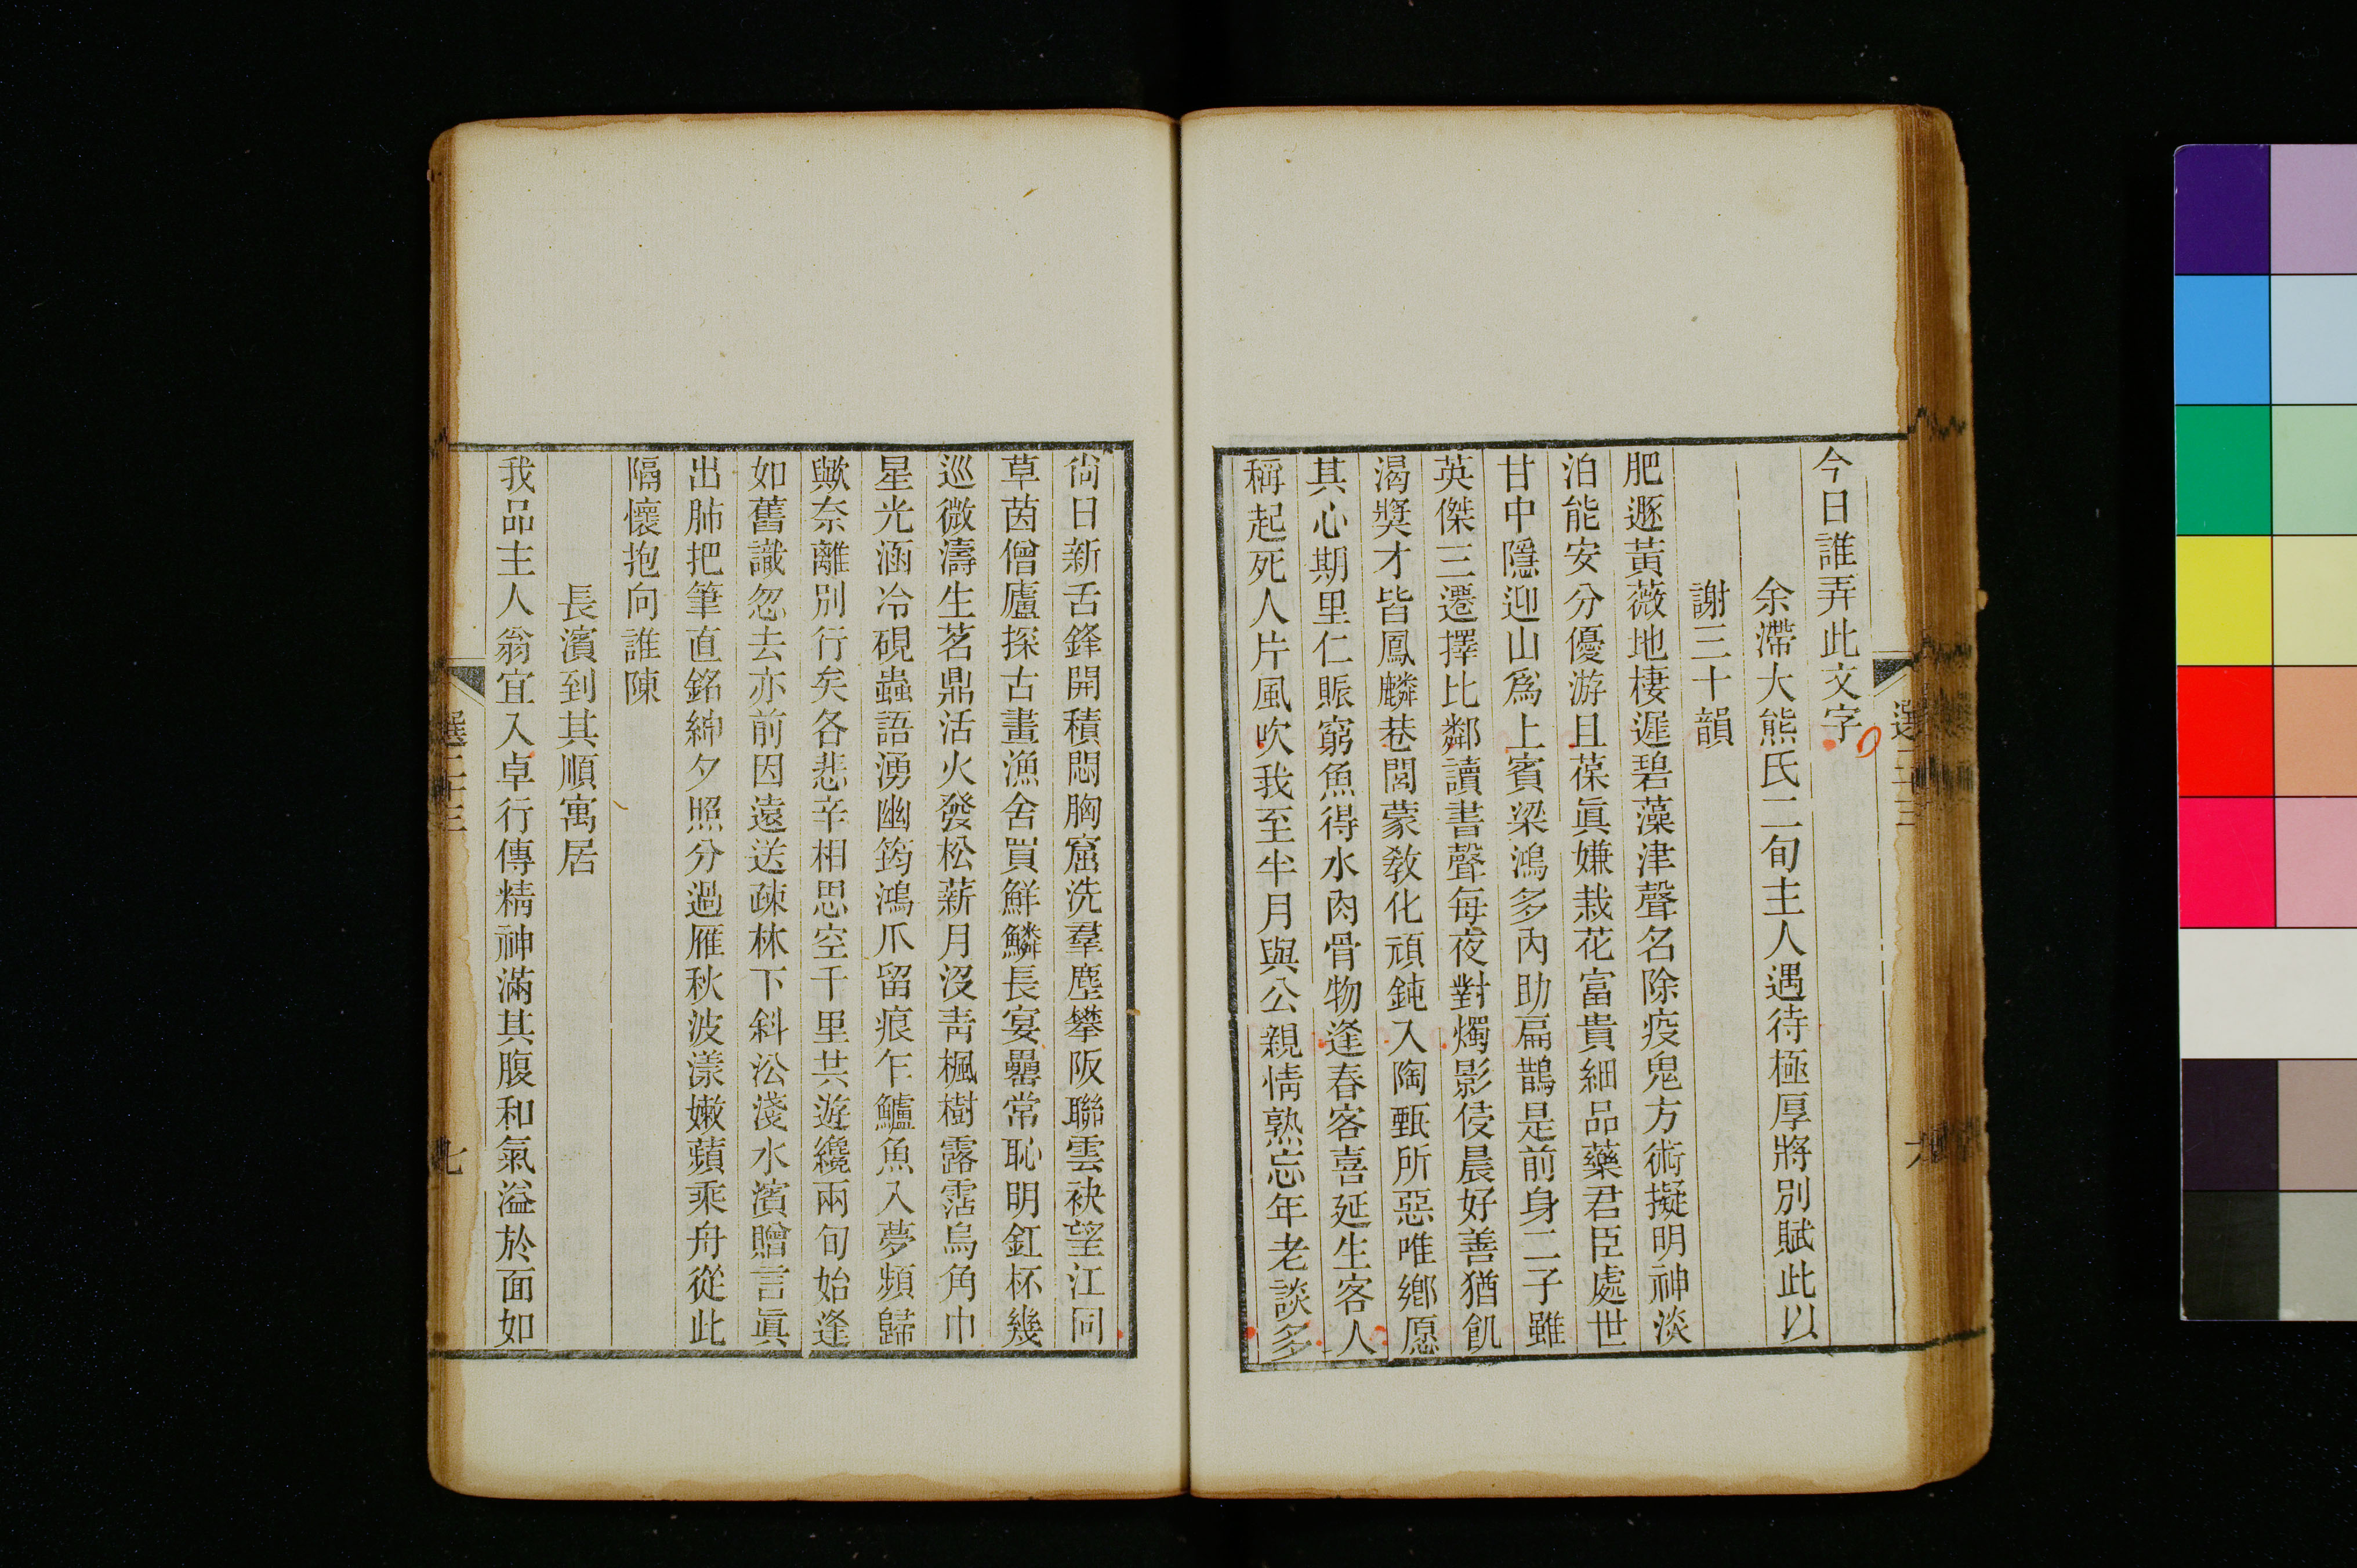 今日誰弄此文字
余滯大熊氏二旬主人遇待極厚將別賦此以
謝三十韻
肥遯黃薇地棲遲碧藻津聲名除疫鬼方術擬明神淡
泊能安分優游且葆眞嫌栽花富貴細品藥君臣處世
甘中隱迎山爲上賓梁鴻多內助扁鵲是前身二子雖
英傑三遷擇比鄰讀書聲每夜對燭影侵晨好善猶飢
渴獎才皆鳳麟巷閭蒙敎化頑鈍入陶甄所惡唯鄕愿
其心期里仁賑窮魚得水肉骨物逢春客喜延生客人
稱起死人片風吹我至半月與公親情熟忘年老談多
尙日新舌鋒開積悶胸窟洗羣塵攀阪聯雲袂望江同
草茵僧廬探古畫漁舍買鮮鱗長宴罍常恥明釭杯幾
巡微濤生茗鼎活火發松薪月沒靑楓樹露霑烏角巾
星光涵冷硯蟲語湧幽筠鴻爪留痕乍鱸魚入夢頻歸
歟奈離別行矣各悲辛相思空千里共遊纔兩旬始逢
如舊識忽去亦前因遠送疎林下斜沿淺水濱贈言眞
出肺把筆直銘紳夕照分過雁秋波漾嫩蘋乘舟從此
隔懷抱向誰陳
長濱到其順寓居
我品主人翁宜入卓行傳精神滿其腹和氣溢於面如
選二十三
七